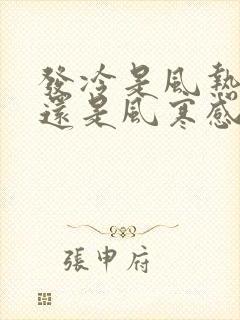 發冷是風熱
還是風寒感
張申府